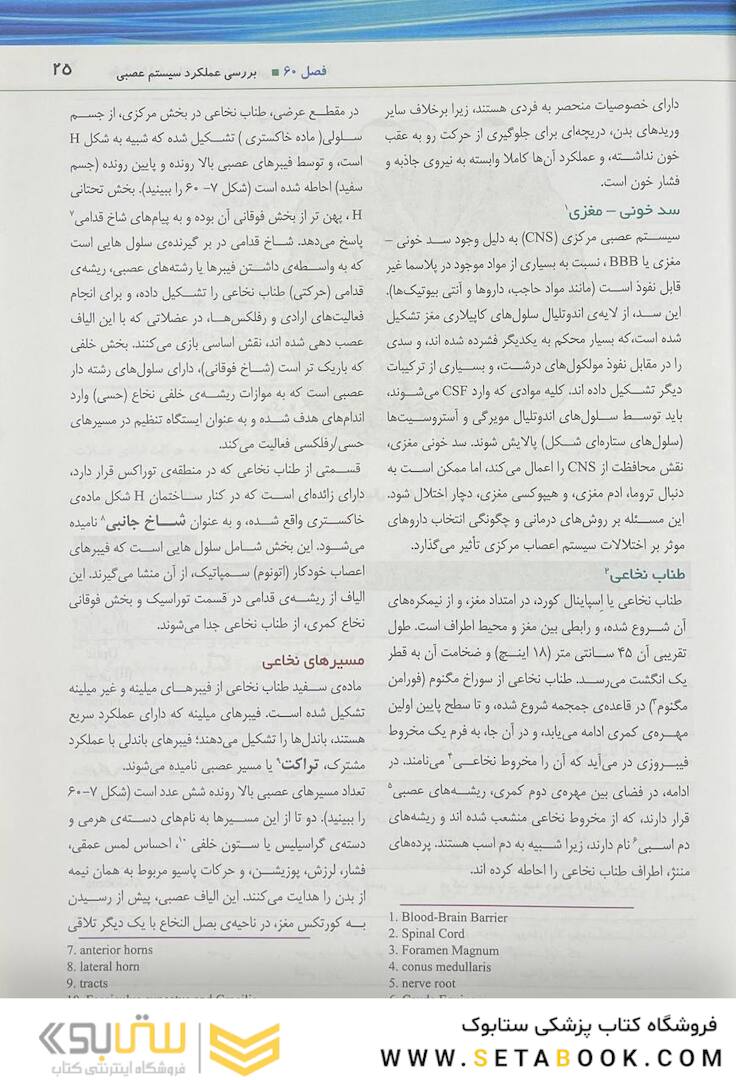 فصل ۶۰ ■ بررسی عملکرد سیستم عصبی
۲۵
دارای خصوصیات منحصر به فردی هستند، زیرا برخلاف سایر
وریدهای بدن، دریچه‌ای برای جلوگیری از حرکت رو به عقب
خون نداشته، و عملکرد آن‌ها کاملا وابسته به نیروی جاذبه و
فشار خون است.
سد خونی – مغزی۱
سیستم عصبی مرکزی (CNS) به دلیل وجود سد خونی –
مغزی یا BBB ، نسبت به بسیاری از مواد موجود در پلاسما غیر
قابل نفوذ است (مانند مواد حاجب، داروها و آنتی بیوتیک‌ها).
این سد، از لایه‌ی اندوتلیال سلول‌های کاپیلاری مغز تشکیل
شده است،که بسیار محکم به یکدیگر فشرده شده اند، و سدی
را در مقابل نفوذ مولکول‌های درشت، و بسیاری از ترکیبات
دیگر تشکیل داده اند. کلیه موادی که وارد CSF می‌شوند،
باید توسط سلول‌های اندوتلیال مویرگی و آستروسیت‌ها
(سلول‌های ستاره‌ای شکل) پالایش شوند. سد خونی مغزی،
نقش محافظت از CNS را اعمال می‌کند، اما ممکن است به
دنبال تروما، ادم مغزی، و هیپوکسی مغزی، دچار اختلال شود.
این مسئله بر روش‌های درمانی و چگونگی انتخاب داروهای
موثر بر اختلالات سیستم اعصاب مرکزی تأثیر می‌گذارد.
طناب نخاعی۲
طناب نخاعی یا اسپاینال کورد، در امتداد مغز، و از نیمکره‌های
آن شروع شده، و رابطی بین مغز و محیط اطراف است. طول
تقریبی آن ۴۵ سانتی متر (۱۸ اینچ) و ضخامت آن به قطر
یک انگشت می‌رسد. طناب نخاعی از سوراخ مگنوم (فورامن
مگنوم۳) در قاعده‌ی جمجمه شروع شده، و تا سطح پایین اولین
مهره‌ی کمری ادامه می‌یابد، و در آن جا، به فرم یک مخروط
فیبروزی در می‌آید که آن را مخروط نخاعی۴ می‌نامند. در
ادامه، در فضای بین مهره‌ی دوم کمری، ریشه‌های عصبی۵
قرار دارند، که از مخروط نخاعی منشعب شده اند و ریشه‌های
دم اسبی۶ نام دارند، زیرا شبیه به دم اسب هستند. پرده‌های
مننژ، اطراف طناب نخاعی را احاطه کرده اند.
1. Blood-Brain Barrier
2. Spinal Cord
3. Foramen Magnum
4. conus medullaris
5. nerve root
در مقطع عرضی، طناب نخاعی در بخش مرکزی، از جسم
سلولی( ماده خاکستری ) تشکیل شده که شبیه به شکل H
است، و توسط فیبرهای عصبی بالا رونده و پایین رونده (جسم
سفید) احاطه شده است (شکل ۷– ۶۰ را ببینید). بخش تحتانی
H ، پهن تر از بخش فوقانی آن بوده و به پیام‌های شاخ قدامی۷
پاسخ می‌دهد. شاخ قدامی در بر گیرنده‌ی سلول هایی است
که به واسطه‌ی داشتن فیبرها یا رشته‌های عصبی، ریشه‌ی
قدامی (حرکتی) طناب نخاعی را تشکیل داده، و برای انجام
فعالیت‌های ارادی و رفلکس‌ها، در عضلاتی که با این الیاف
عصب دهی شده اند، نقش اساسی بازی می‌کنند. بخش خلفی
که باریک تر است (شاخ فوقانی)، دارای سلول‌های رشته دار
عصبی است که به موازات ریشه‌ی خلفی نخاع (حسی) وارد
اندام‌های هدف شده و به عنوان ایستگاه تنظیم در مسیرهای
حسی/رفلکسی فعالیت می‌کند.
قسمتی از طناب نخاعی که در منطقه‌ی توراکس قرار دارد،
دارای زائده‌ای است که در کنار ساختمان H شکل ماده‌ی
خاکستری واقع شده، و به عنوان شاخ جانبی۸ نامیده
می‌شود. این بخش شامل سلول هایی است که فیبرهای
اعصاب خودکار (اتونوم) سمپاتیک، از آن منشا می‌گیرند. این
الیاف از ریشه‌ی قدامی در قسمت توراسیک و بخش فوقانی
نخاع کمری، از طناب نخاعی جدا می‌شوند.
مسیرهای نخاعی
ماده‌ی سفید طناب نخاعی از فیبرهای میلینه و غیر میلینه
تشکیل شده است. فیبرهای میلینه که دارای عملکرد سریع
هستند، باندل‌ها را تشکیل می‌دهند؛ فیبرهای باندلی با عملکرد
مشترک، تراکت۹ یا مسیر عصبی نامیده می‌شوند.
تعداد مسیرهای عصبی بالا رونده شش عدد است (شکل ۷–۶۰
را ببینید). دو تا از این مسیرها به نام‌های دسته‌ی هرمی و
دسته‌ی گراسیلیس یا ستون خلفی ۱۰، احساس لمس عمقی،
فشار، لرزش، پوزیشن، و حرکات پاسیو مربوط به همان نیمه
از بدن را هدایت می‌کنند. این الیاف عصبی، پیش از رسیدن
به کورتکس مغز، در ناحیه‌ی بصل النخاع با یک دیگر تلاقی
7. anterior horns
8. lateral horn
9. tracts
فروشگاه کتاب پزشکی ستابوک
WWW.SETABOOK.COM
ستابوک
فروشگاه اینترنتی کتاب